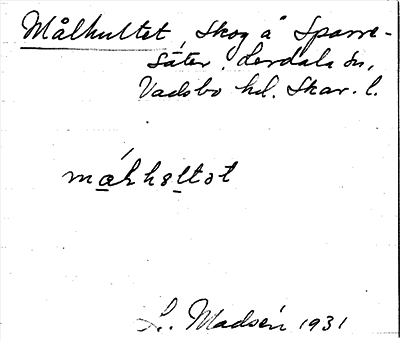 Målhultet, Skog å Sparre-
säter, Lerdala sn,
Vadsbo hd. Skar. l.
målhultət
L. Madsén 1931